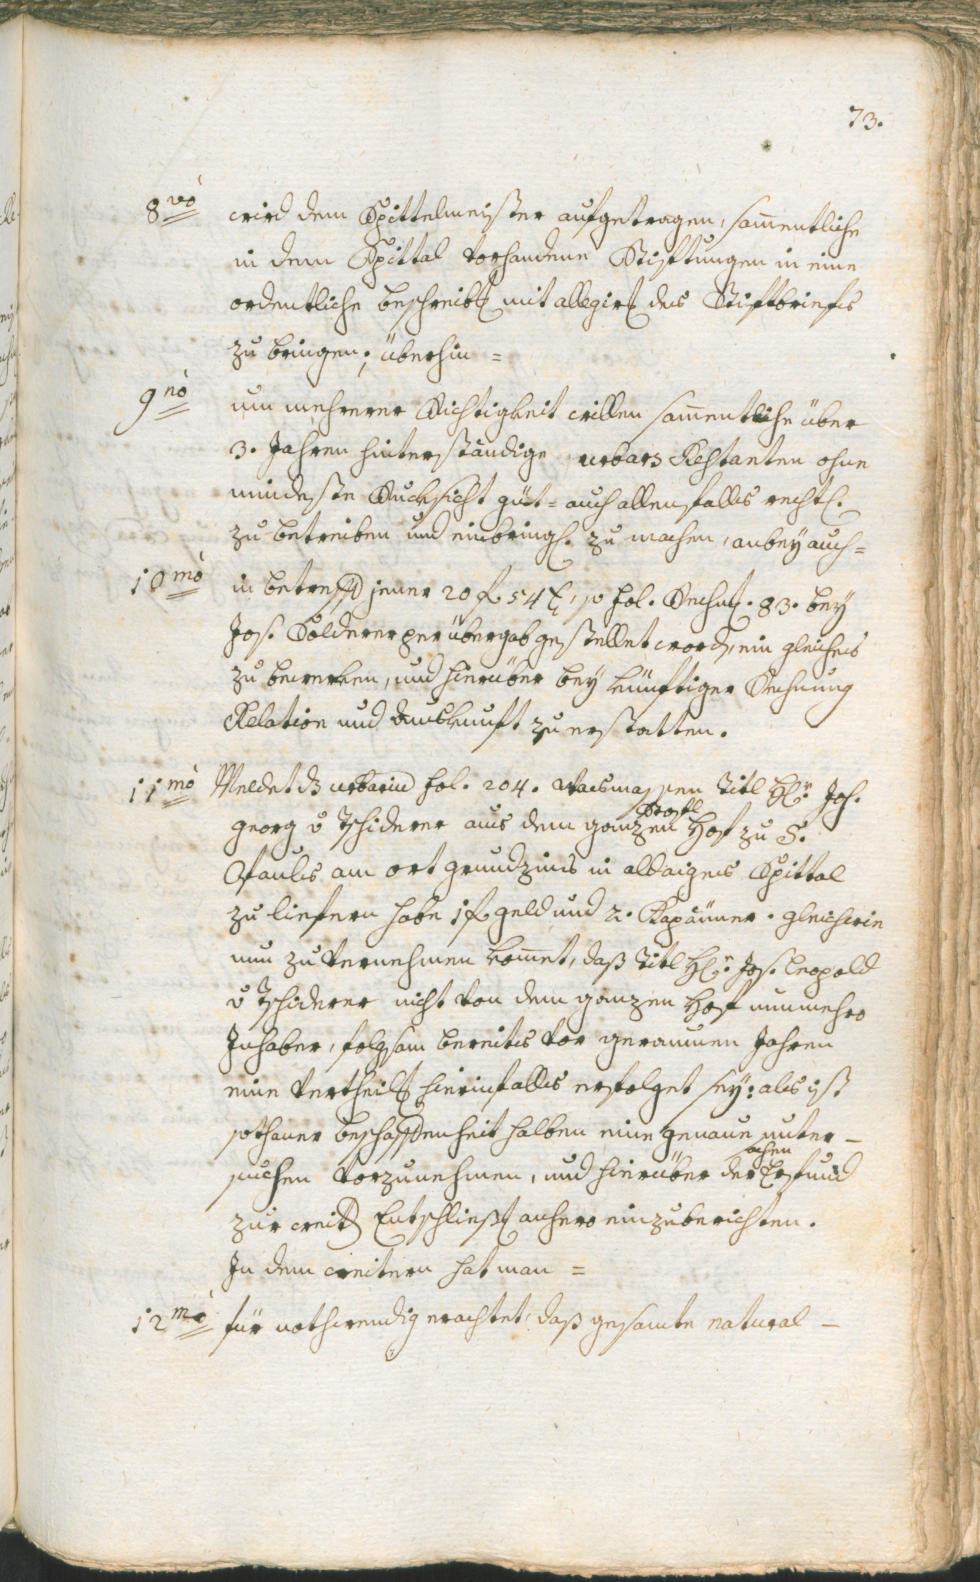 73.
8vo wird dem Spittelmeister aufgetragen, sam̄entliche
in dem Spittal vorhandene Stiftungen in eine
ordentliche beschreibg mit allegirg des Stiftbriefs
zu bringen; überhin =
9no um mehrerer Richtigkeit willen sam̄entliche über
3. Jahren hinterständige urbars Restanten ohne
mindeste Rucksicht güt= auch allenfalls rechtl.
zu betreiben und einbringl. zu machen, anbey auch=
10mo in betreff jener 20 f. 54 x, so fol. Rechng. 83. bey
Jos. Solderer per übergab gestellet word, ein gleiches
zu bewerken, und hierüber bey künftiger Rechnung
Relation und auskunft zu erstatten.
11mo Meldet dz urbarium fol. 204. wasmassen Titl Hr. Joh.
georg v Tschiderer aus dem ganzen Hof zu S.
Paules am ort grundzins in alldaiges Spittal
zu liefern habe 1 f. geld und 2. Kapäuner. gleichwie
nun zu vernehmen kom̄et, daß Titl Hr. Jos. leopold
v Tschiderer nicht von dem ganzen Hof nunmehro
Inhaber, folgsam bereits vor geraumen Jahren
eine vertheilg hierinfalls erfolget sey: als ist
sothaner beschaffenheit halben eine genaue unter-
suchen vorzunehmen, und hierüber der Erfund
zur weitr Entschließg anhero einzuberichten.
In dem weitern hat man =
12mo für nothwendig erachtet, daß gesamte natural -